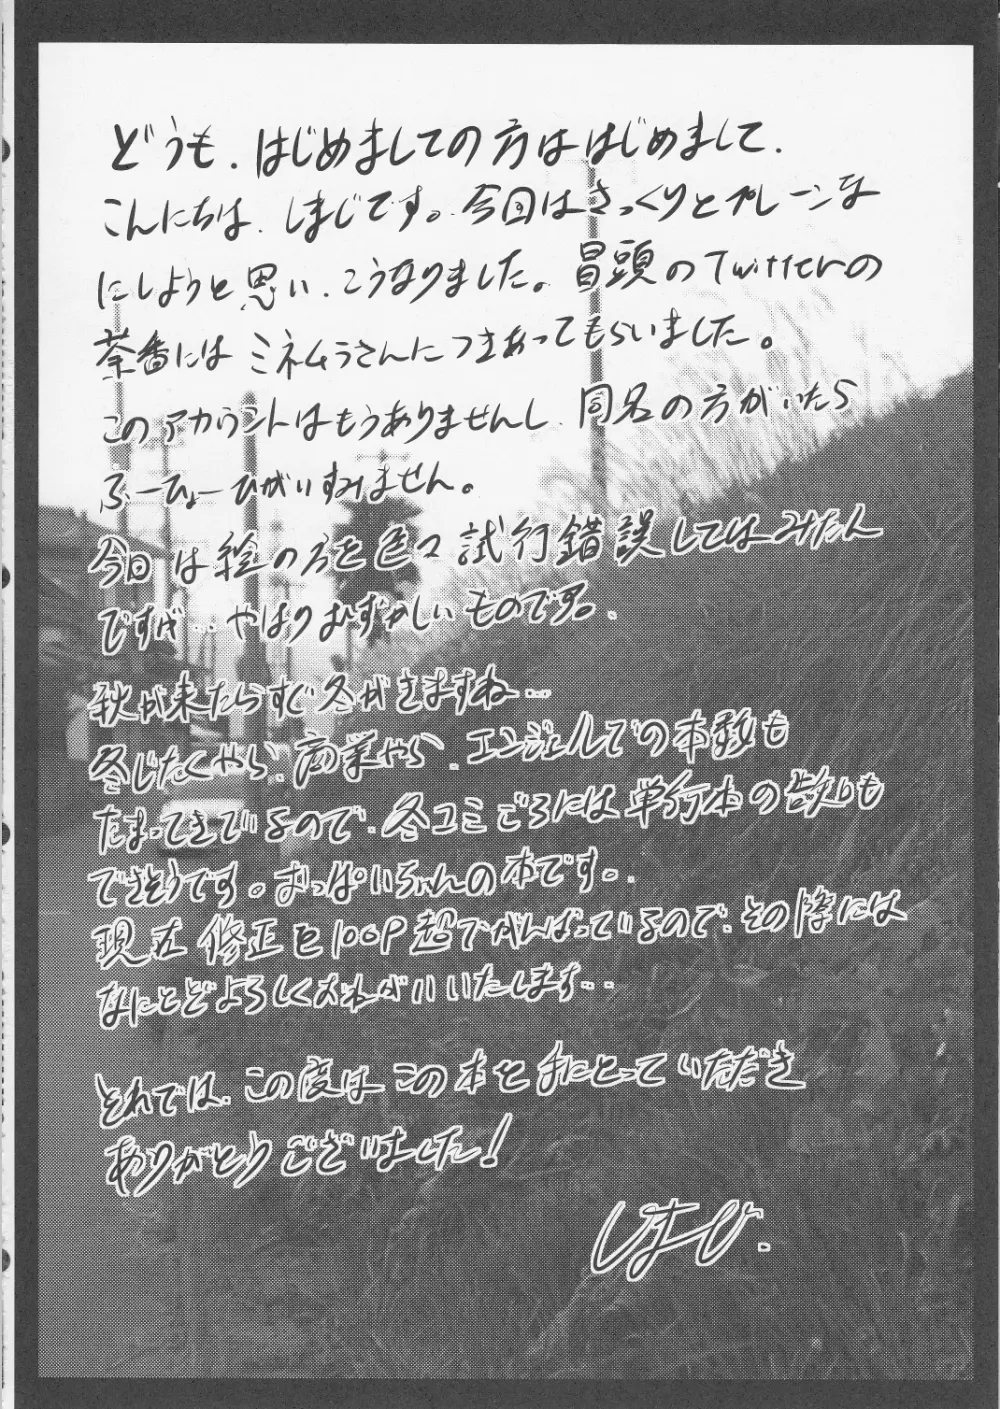 どうも．はじめましての方ははじめまして．
こんにちは．しまじです。今回はさっくりとプレーンな
にしようと思い．こうなりました。冒頭のTwitterの
茶番にはミネムラさんにつきあってもらいました。
このアカウントはもうありませんし．同名の方がいたら
ふーひょーひがいすみません。
今回は絵の方を色々試行錯誤してはみたん
ですが…やはりむずかしいものです。．
秋が来たらすぐ冬がきますね…
冬じたくやら．商業やら．エンジェルでの本数も
たまってきているので．冬コミごろには単行本の告知も
できそうです。おっぱいちゃんの本です。．
現在修正を100P超でがんばっているので．その際には
なにとどよろしくおねがいいたします…
それでは．この度はこの本を手にとっていただき
ありがとうございました！
しまじ．